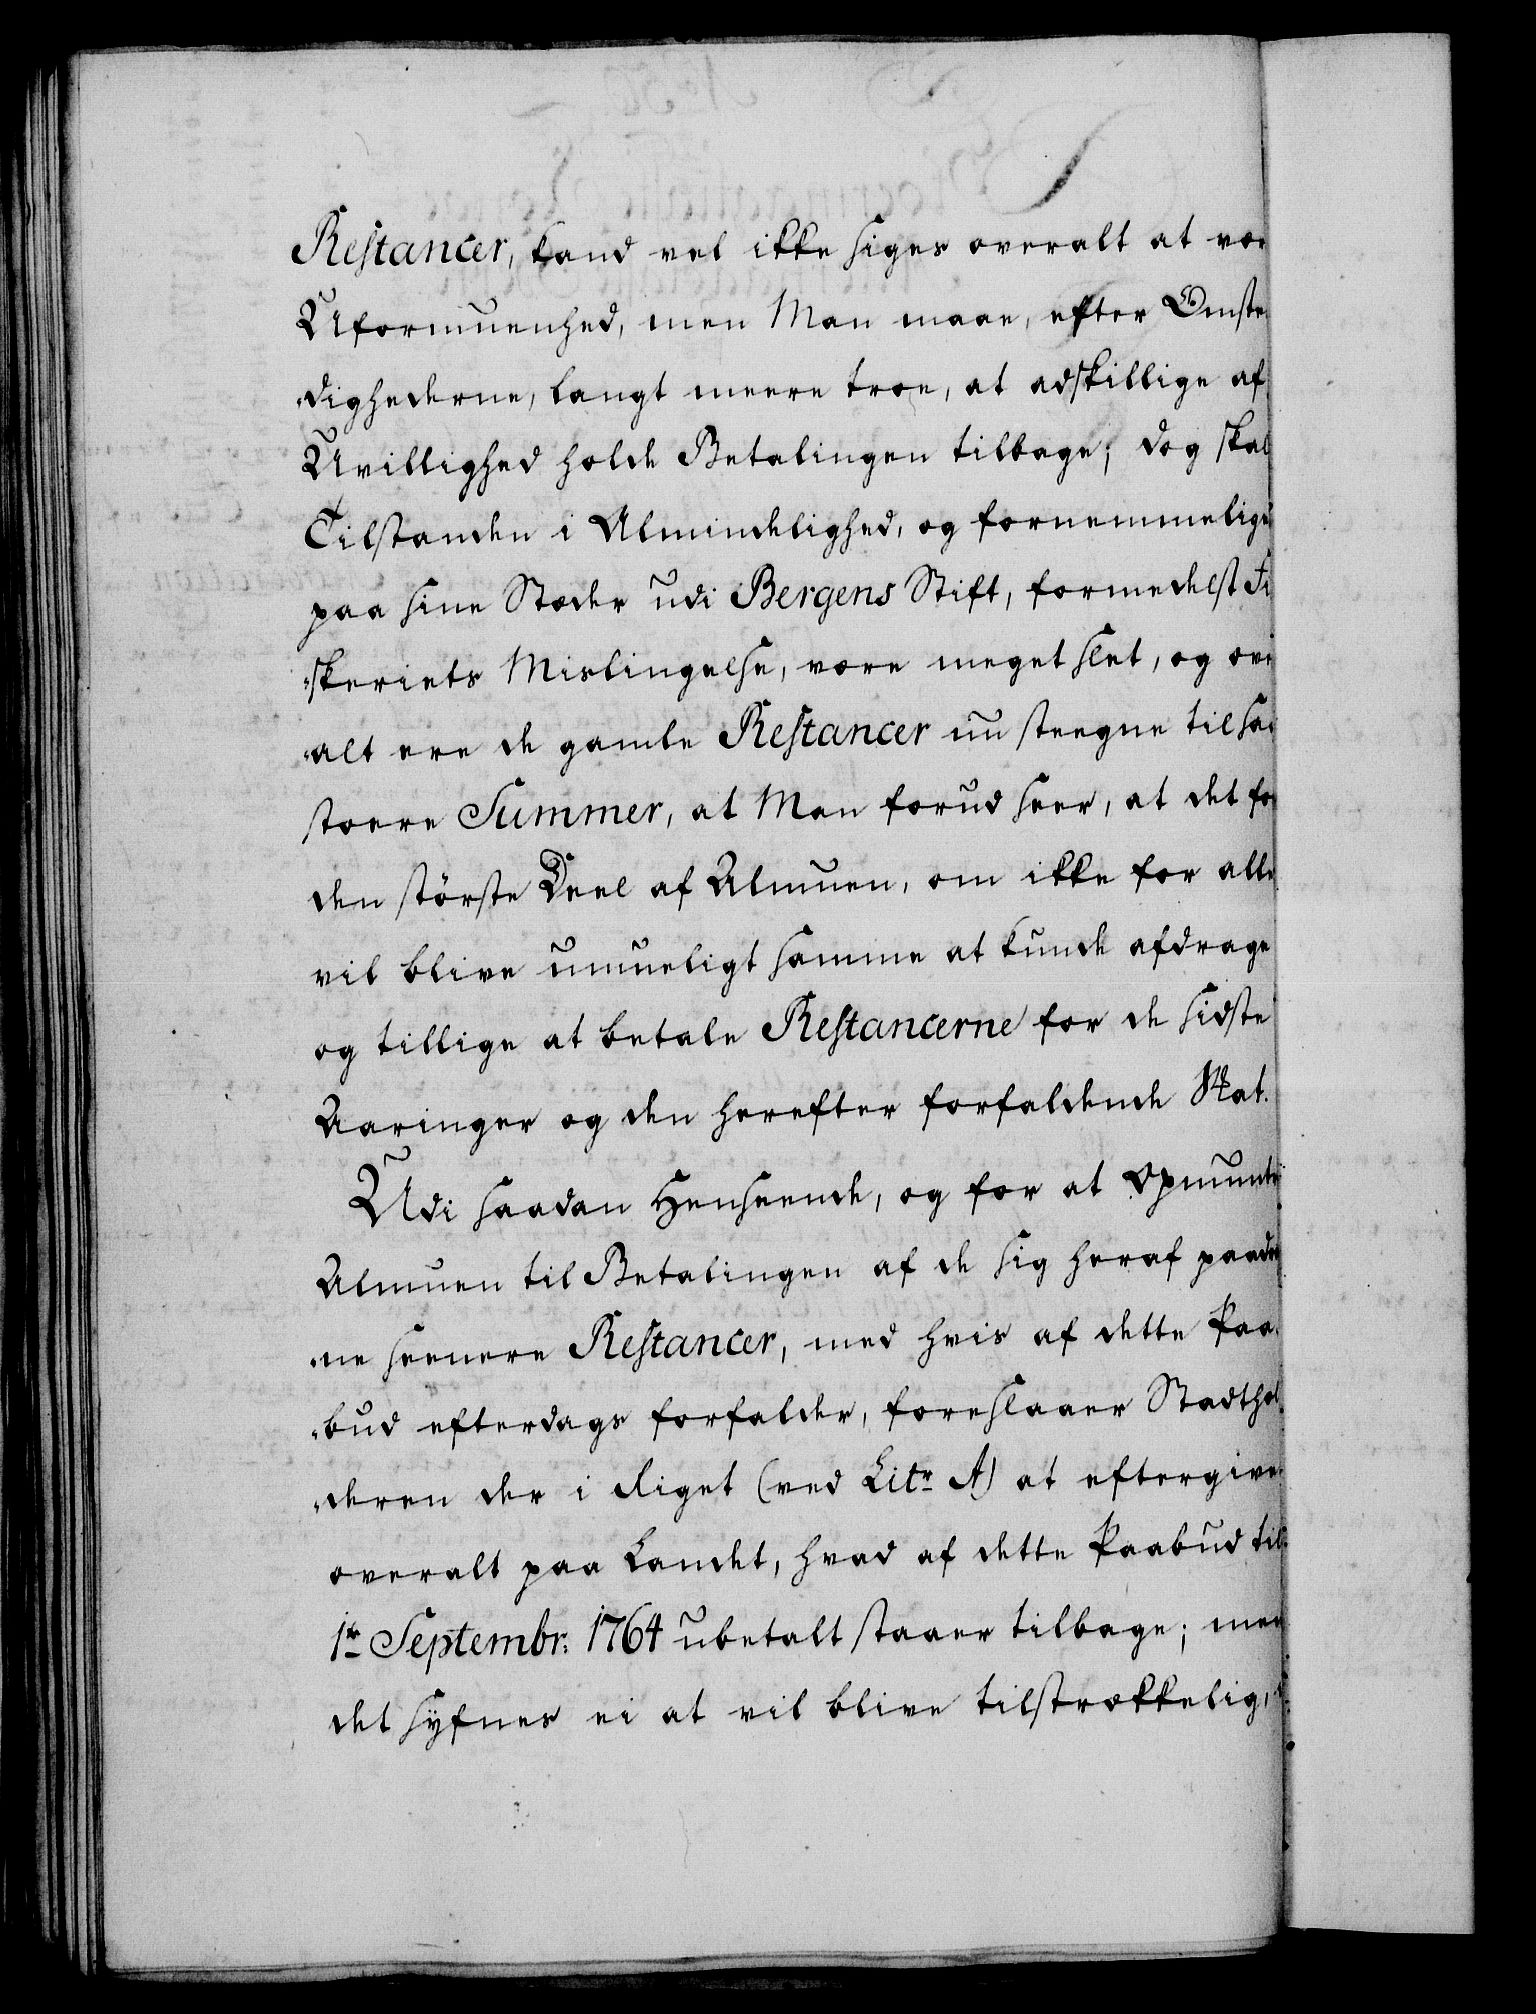 Restancer, kand vel ikke siges overalt at væ
Uformuenhed, men Man maae, efter Omstæ
-dighederne, langt meere troe, at adskillige af
Uvillighed holde Betalingen tilbage; dog skal
Tilstanden i Almindelighed, og fornemmelige
paa sine Stæder udi Bergens Stift, formedelst Fi
-skeriets Mislingelse, være meget slet, og over
-alt ere de gamle Restancer nu steegne til saa
stoere Summer, at Man forud seer, at det for
den største Deel af Almuen, om ikke for alle
vil blive umueligt samme at kunde afdrage
og tillige at betale Restancerne for de sidste
Aaringer og den herefter forfaldende Skat.
Udi saadan Henseende, og for at Opmuntre
Almuen til Betalingen af de sig heraf paadra
-ne seenere Restancer, med hvis af dette Paa-
-bud efterdags forfalder, foreslaaer Stadthol
-deren der i Riget (ved Litr A) at eftergive
overalt paa Landet, hvad af dette Paabud til
1te Septembr: 1764 ubetalt staaer tilbage; men
det syfnes ei at vil blive tilstrækkelig,